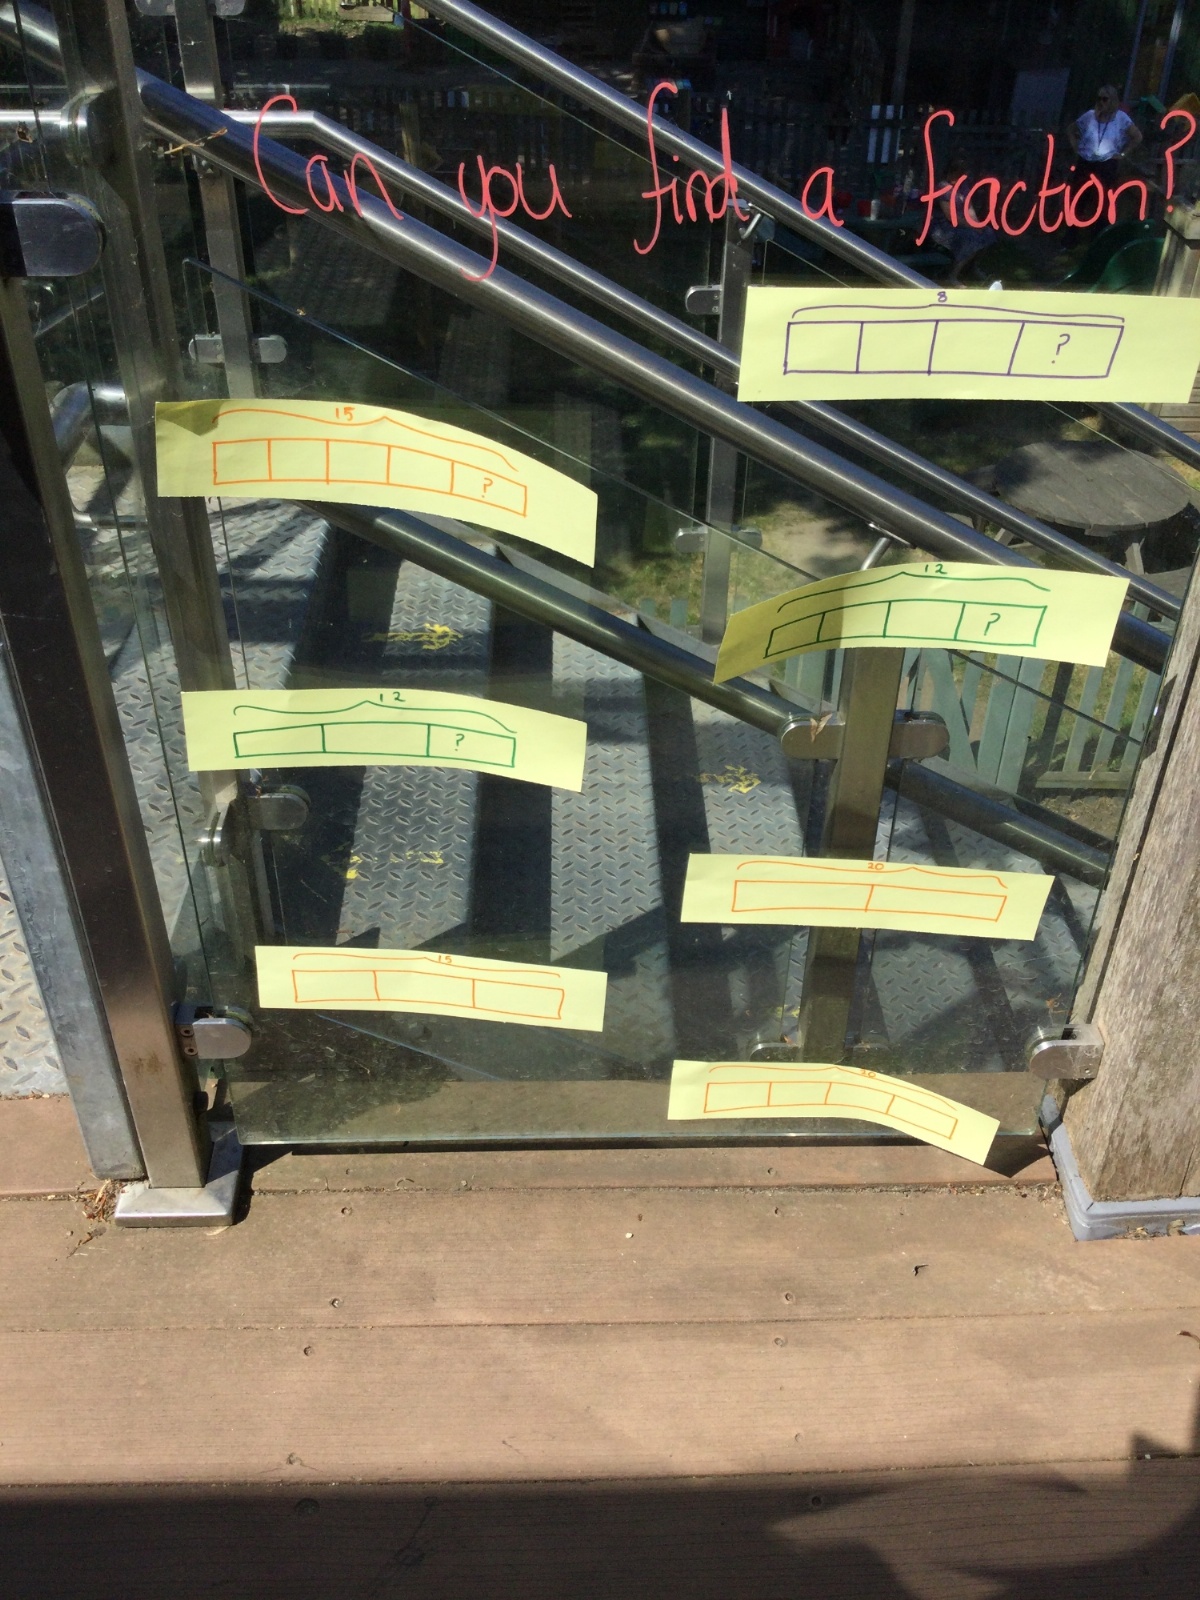 Can you find a fraction?
8
?
15
?
12
?
12
?
20
15
20